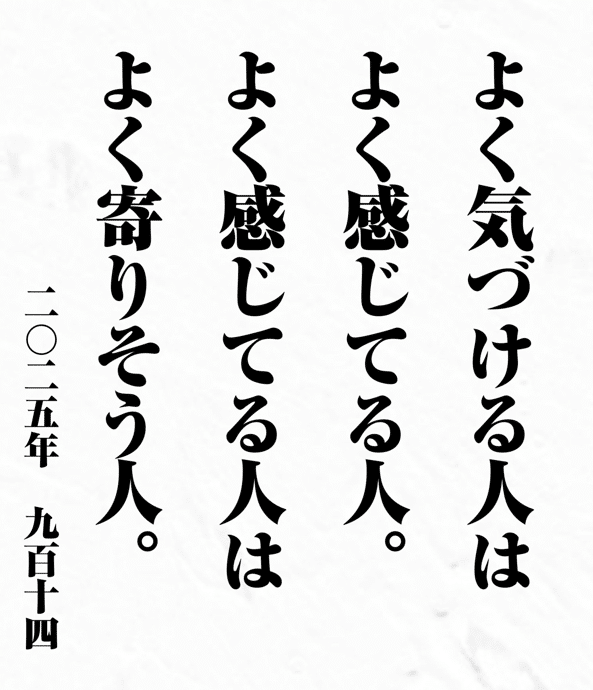 よく気づける人は
よく感じてる人。
よく感じてる人は
よく寄りそう人。
二〇二五年 九百十四